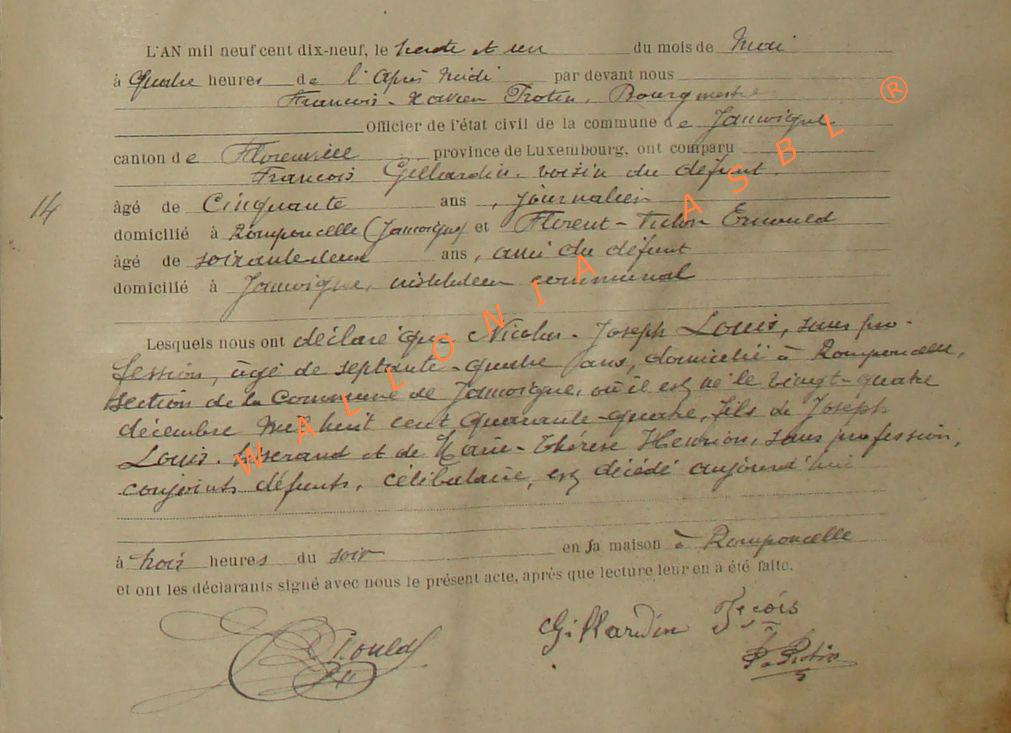 L'AN mil neuf cent dix-neuf, le trente et un du mois de Mai
à quatre heures de l'après midi par devant nous
François-Xavier Protin, Bourgmestre
Officier de l'état civil de la commune de Jamoigne
canton de Florenville province de Luxembourg, ont comparu
François Gillardin, voisin du défunt.
âgé de Cinquante ans, journalier
14
domicilié à Romponcelle (Jamoigne) et Florent-Victor Ernould
âgé de soixante deux ans, ami du défunt
domicilié à Jamoigne, instituteur communal
Lesquels nous ont déclaré que Nicolas-Joseph Louis, sans pro-
fession, âgé de septante-quatre ans, domicilié à Romponcelle,
section de la Commune de Jamoigne, où il est né le vingt-quatre
décembre mil huit cent quarante-quatre, fils de Joseph
Louis, tisserand et de Marie-Thérèse Henrion, sans profession,
conjoints défunts, célibataire, est décédé aujourd'hui
à trois heures du soir en sa maison à Romponcelle
et ont les déclarants signé avec nous le présent acte, après que lecture leur en a été faite.
Gillardin Fçois
Protin
WALLONIA ASBL ®